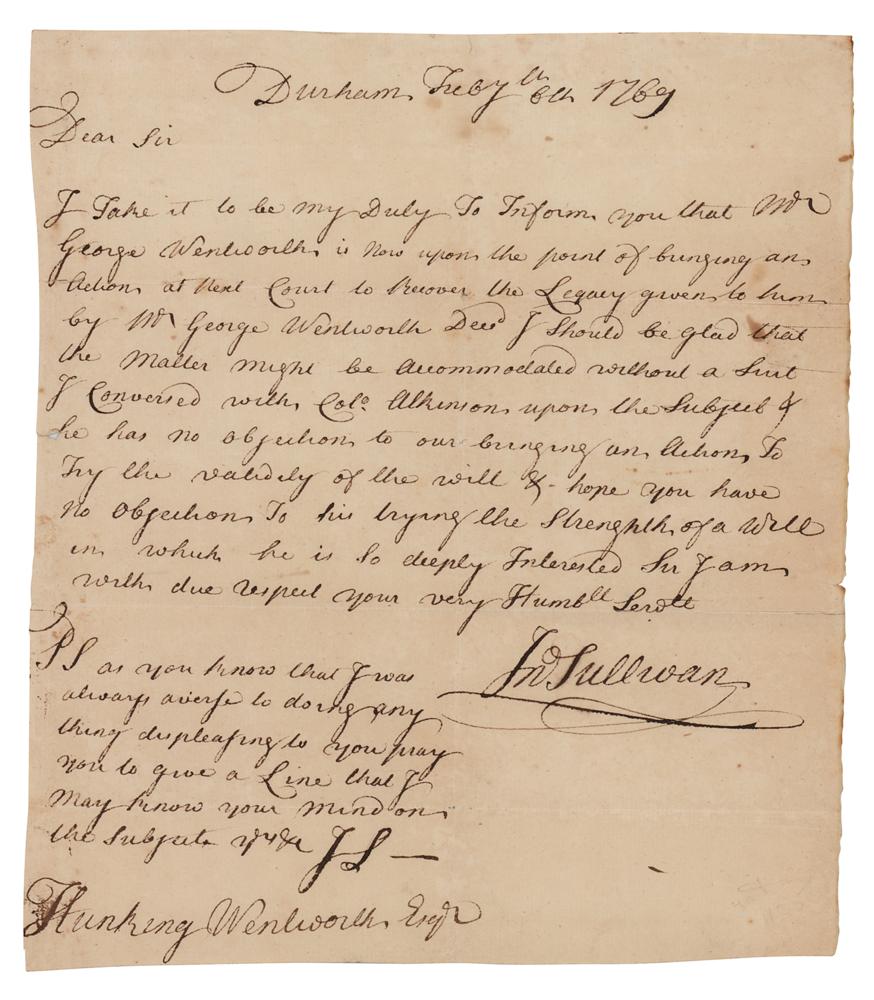 Durham Feby 6th 1769
Dear Sir
I Take it to be my Duty To Inform you that Mr
George Wentworth is now upon the point of bringing an
Action at next Court to Recover the Legacy given to him
by Mr George Wentworth Decd I should be glad that
the Matter might be accommodated without a Suit
I Conversed with Colo. Atkinson upon the Subject &
he has no objection to our bringing an Action To
Try the validity of the will & hope you have
no objection To his trying the Strength of a Will
in which he is So deeply Interested Sir I am
with due respect your very Humbll Servtt
Jno Sullivan
PS as you know that I was
always averse to doing any
thing displeasing to you pray
you to give a Line that I
may know your mind on
the Subject JS —
Hunking Wentworth Esqr